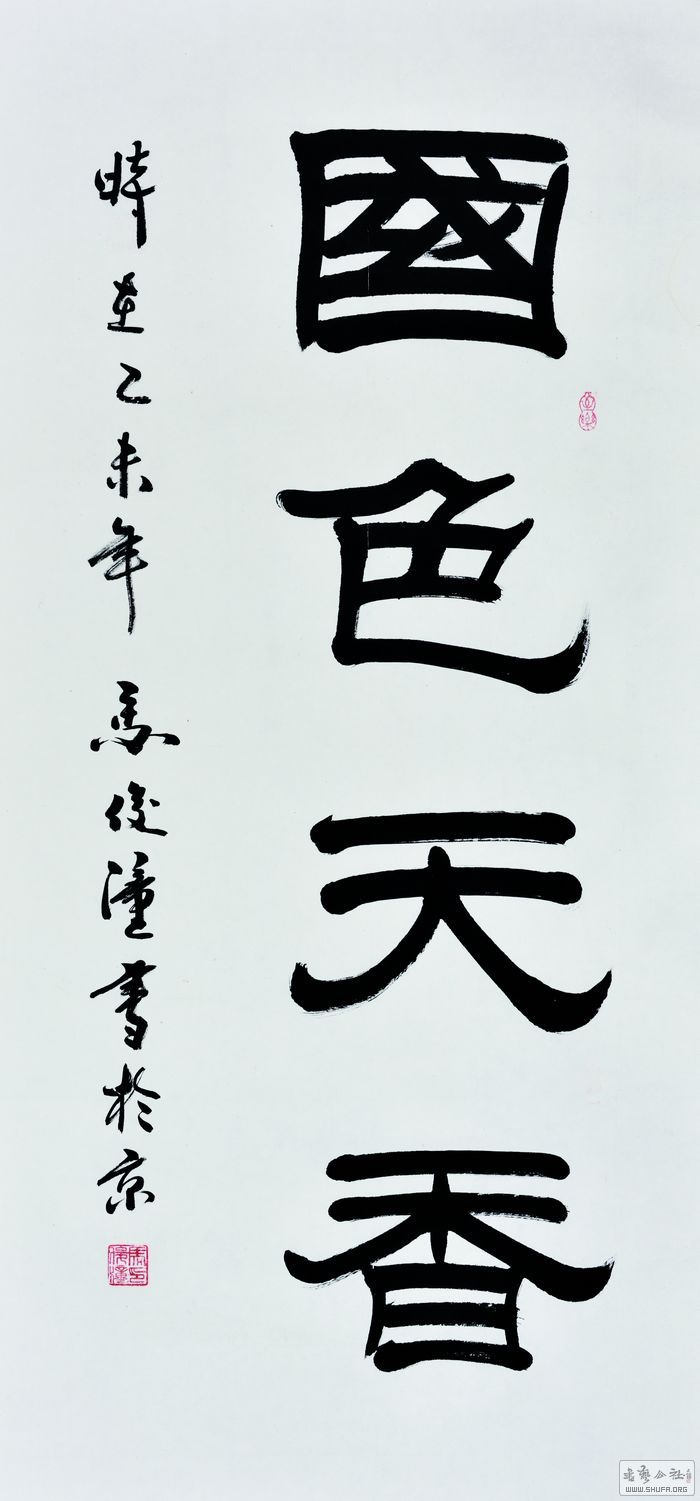 國色天香
時在乙未年 馬俊潼書於京
書藝公社
WWW.SHUFA.ORG